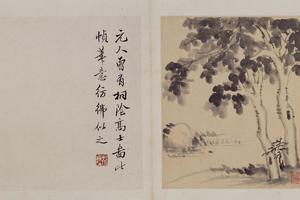 元人曾有桐陰高士圖此
幀筆意彷彿似之